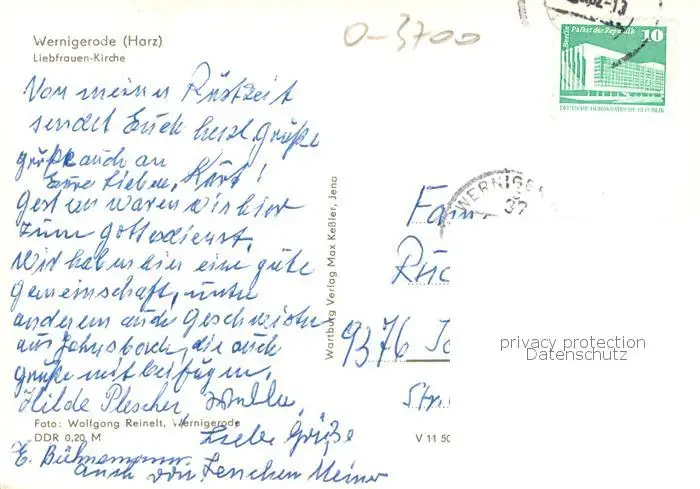 Wernigerode (Harz)
Liebfrauen-Kirche
O-3700
Berlin Palast der Republik
10
DEUTSCHE DEMOKRATISCHE REPUBLIK
WERNIGE
37
Von meiner Rüstzeit
sendet Euch herzl. Grüße
grüße auch an
Eure Lieben, Kurt!
Gestern waren wir hier
zum Gottesdienst.
Wir haben hier eine gute
Gemeinschaft, unter
anderem auch Geschwister
aus Johnsbach, die auch
Grüße mit beifügen.
Hilde Plescher
Liebe Grüße
E. Bühnemann
auch von Lenchen Meiner
Foto: Wolfgang Reinelt, Wernigerode
DDR 0,20 M
Wartburg Verlag Max Keßler, Jena
V 11 50
Fam
Rüc
9376
Str.
privacy protection
Datenschutz